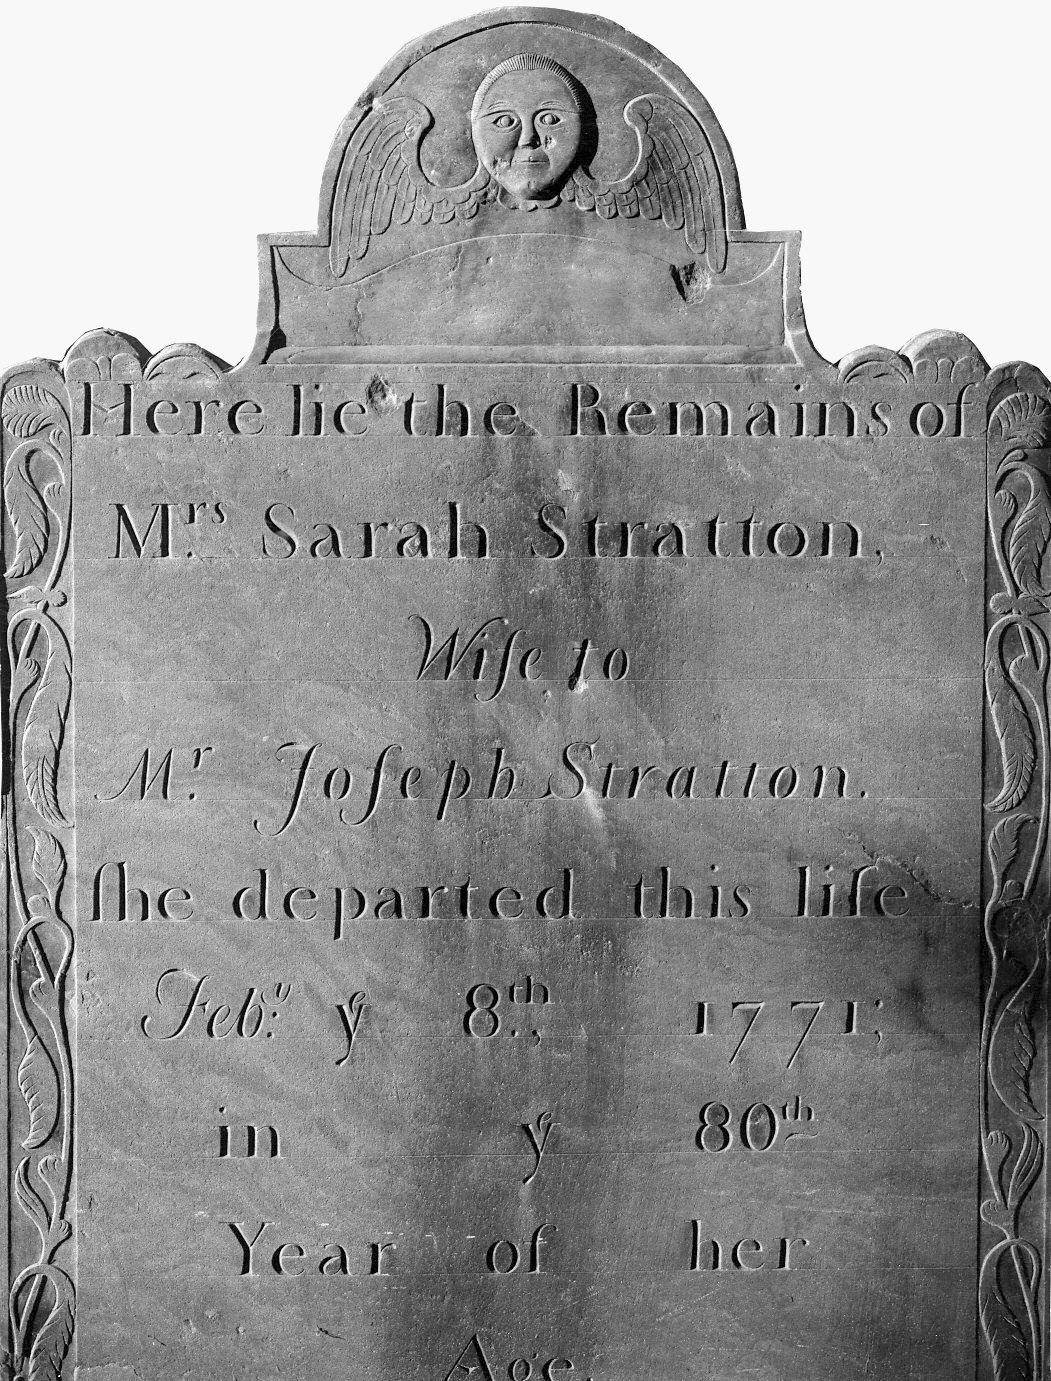 Here lie the Remains of
Mrs. Sarah Stratton,
Wife to
Mr. Joſeph Stratton.
ſhe departed this life
Feby: ye 8th., 1771;
in ye 80th
Year of her
Age.